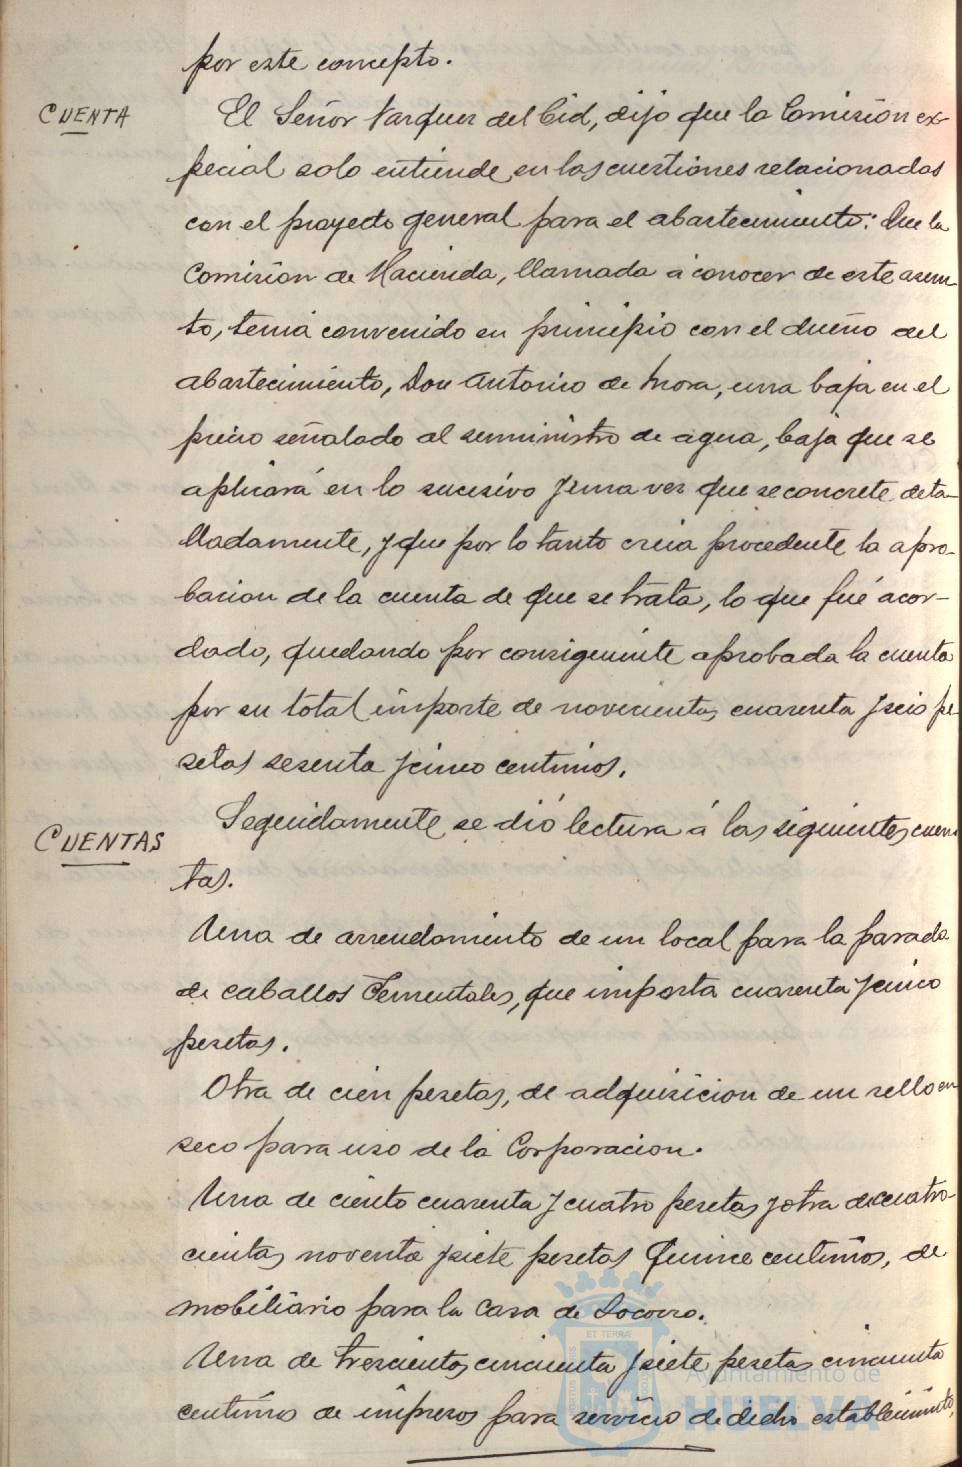 por este concepto.
CUENTA
El Señor Vazquez del Cid, dijo que la Comisión ex-
pecial solo entiende en las cuestiones relacionadas
con el proyecto general para el abastecimiento: Que la
Comisión de Hacienda, llamada á conocer de este asun-
to, tenia convenido en principio con el dueño del
abastecimiento, Don Antonio de Mora, una baja en el
precio señalado al suministro de agua, baja que se
aplicará en lo sucesivo y una vez que se concrete deta-
lladamente, y que por lo tanto creia procedente la apro-
bacion de la cuenta de que se trata, lo que fué acor-
dado, quedando por consiguiente aprobada la cuenta
por su total importe de novecientas cuarenta y seis pe-
setas sesenta y cinco centimos.
CUENTAS
Seguidamente se dió lectura á las siguientes cuen-
tas.
Una de arrendamiento de un local para la parada
de caballos sementales, que importa cuarenta y cinco
pesetas.
Otra de cien pesetas, de adquisicion de un sello en
seco para uso de la Corporacion.
Una de ciento cuarenta y cuatro pesetas y otra de cuatro-
cientas noventa y siete pesetas quince centimos, de
mobiliario para la Casa de Socorro.
Una de trescientas cincuenta y siete pesetas cincuenta
centimos de impresos para servicio de dicho establecimiento,
ET TERRÆ
Ayuntamiento de
HUELVA